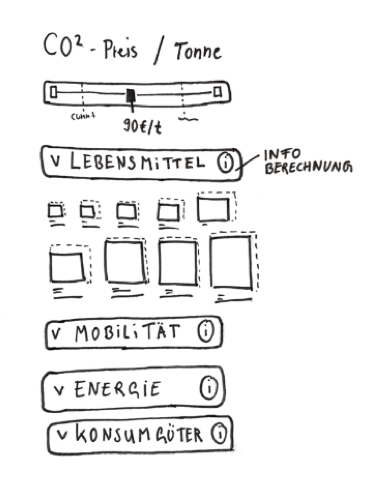 CO² - Preis / Tonne
90€/t
v LEBENSMITTEL i
INFO
BERECHNUNG
v MOBILITÄT i
v ENERGIE i
v KONSUMGÜTER i